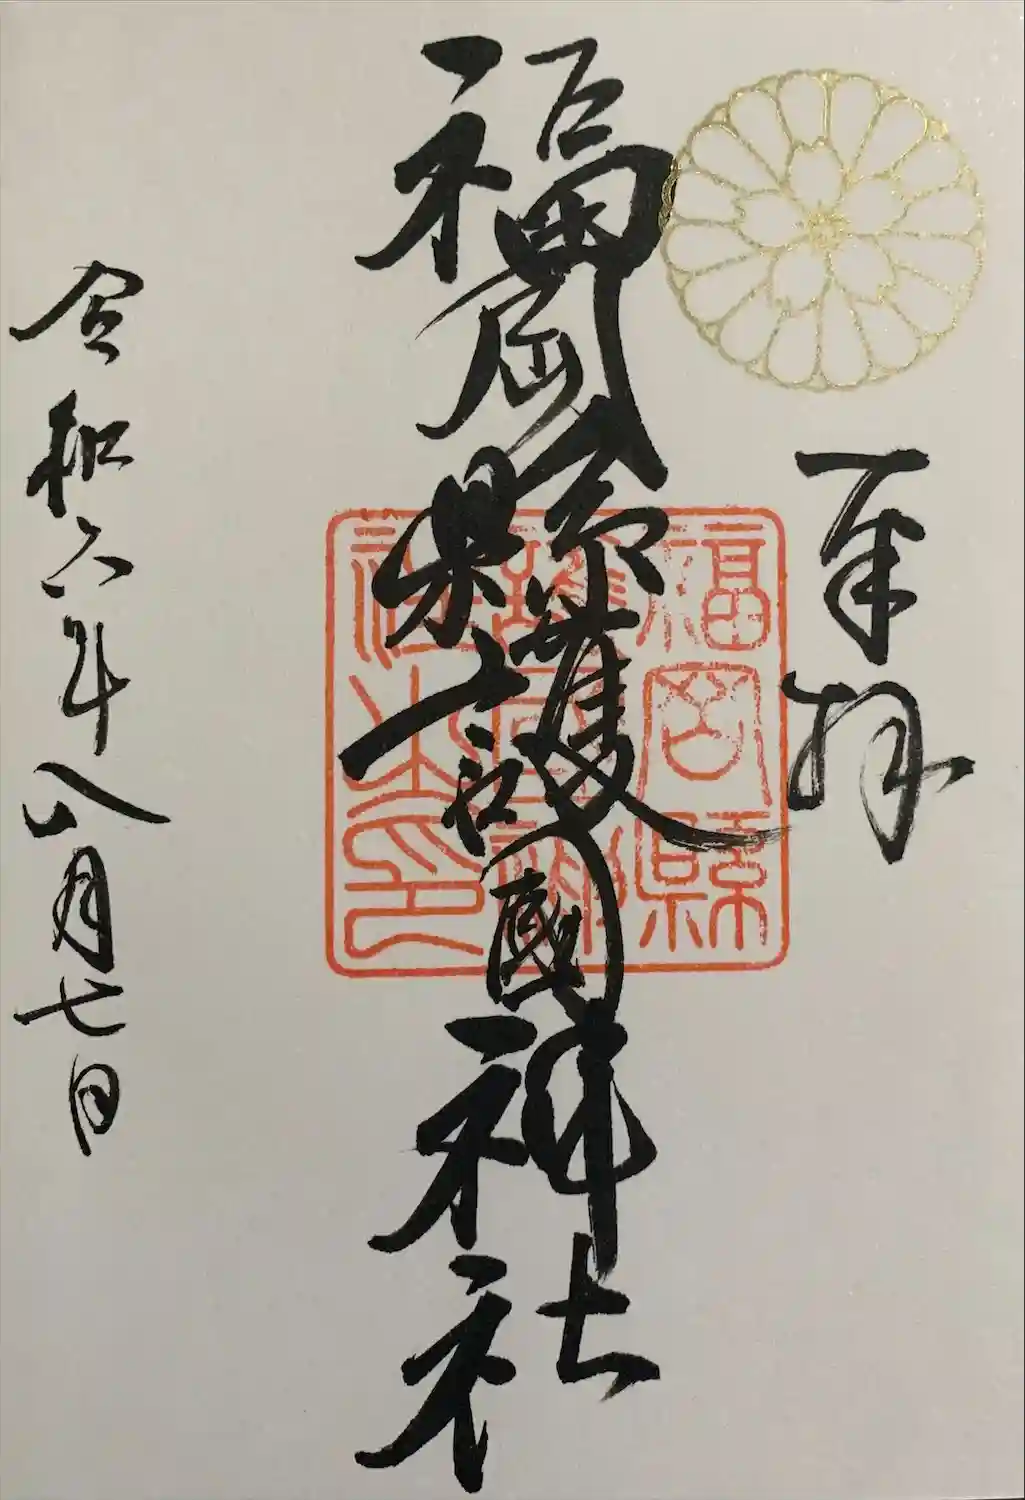 奉拝
福岡縣護國神社
福岡縣
護國神
社之印
令和六年八月七日